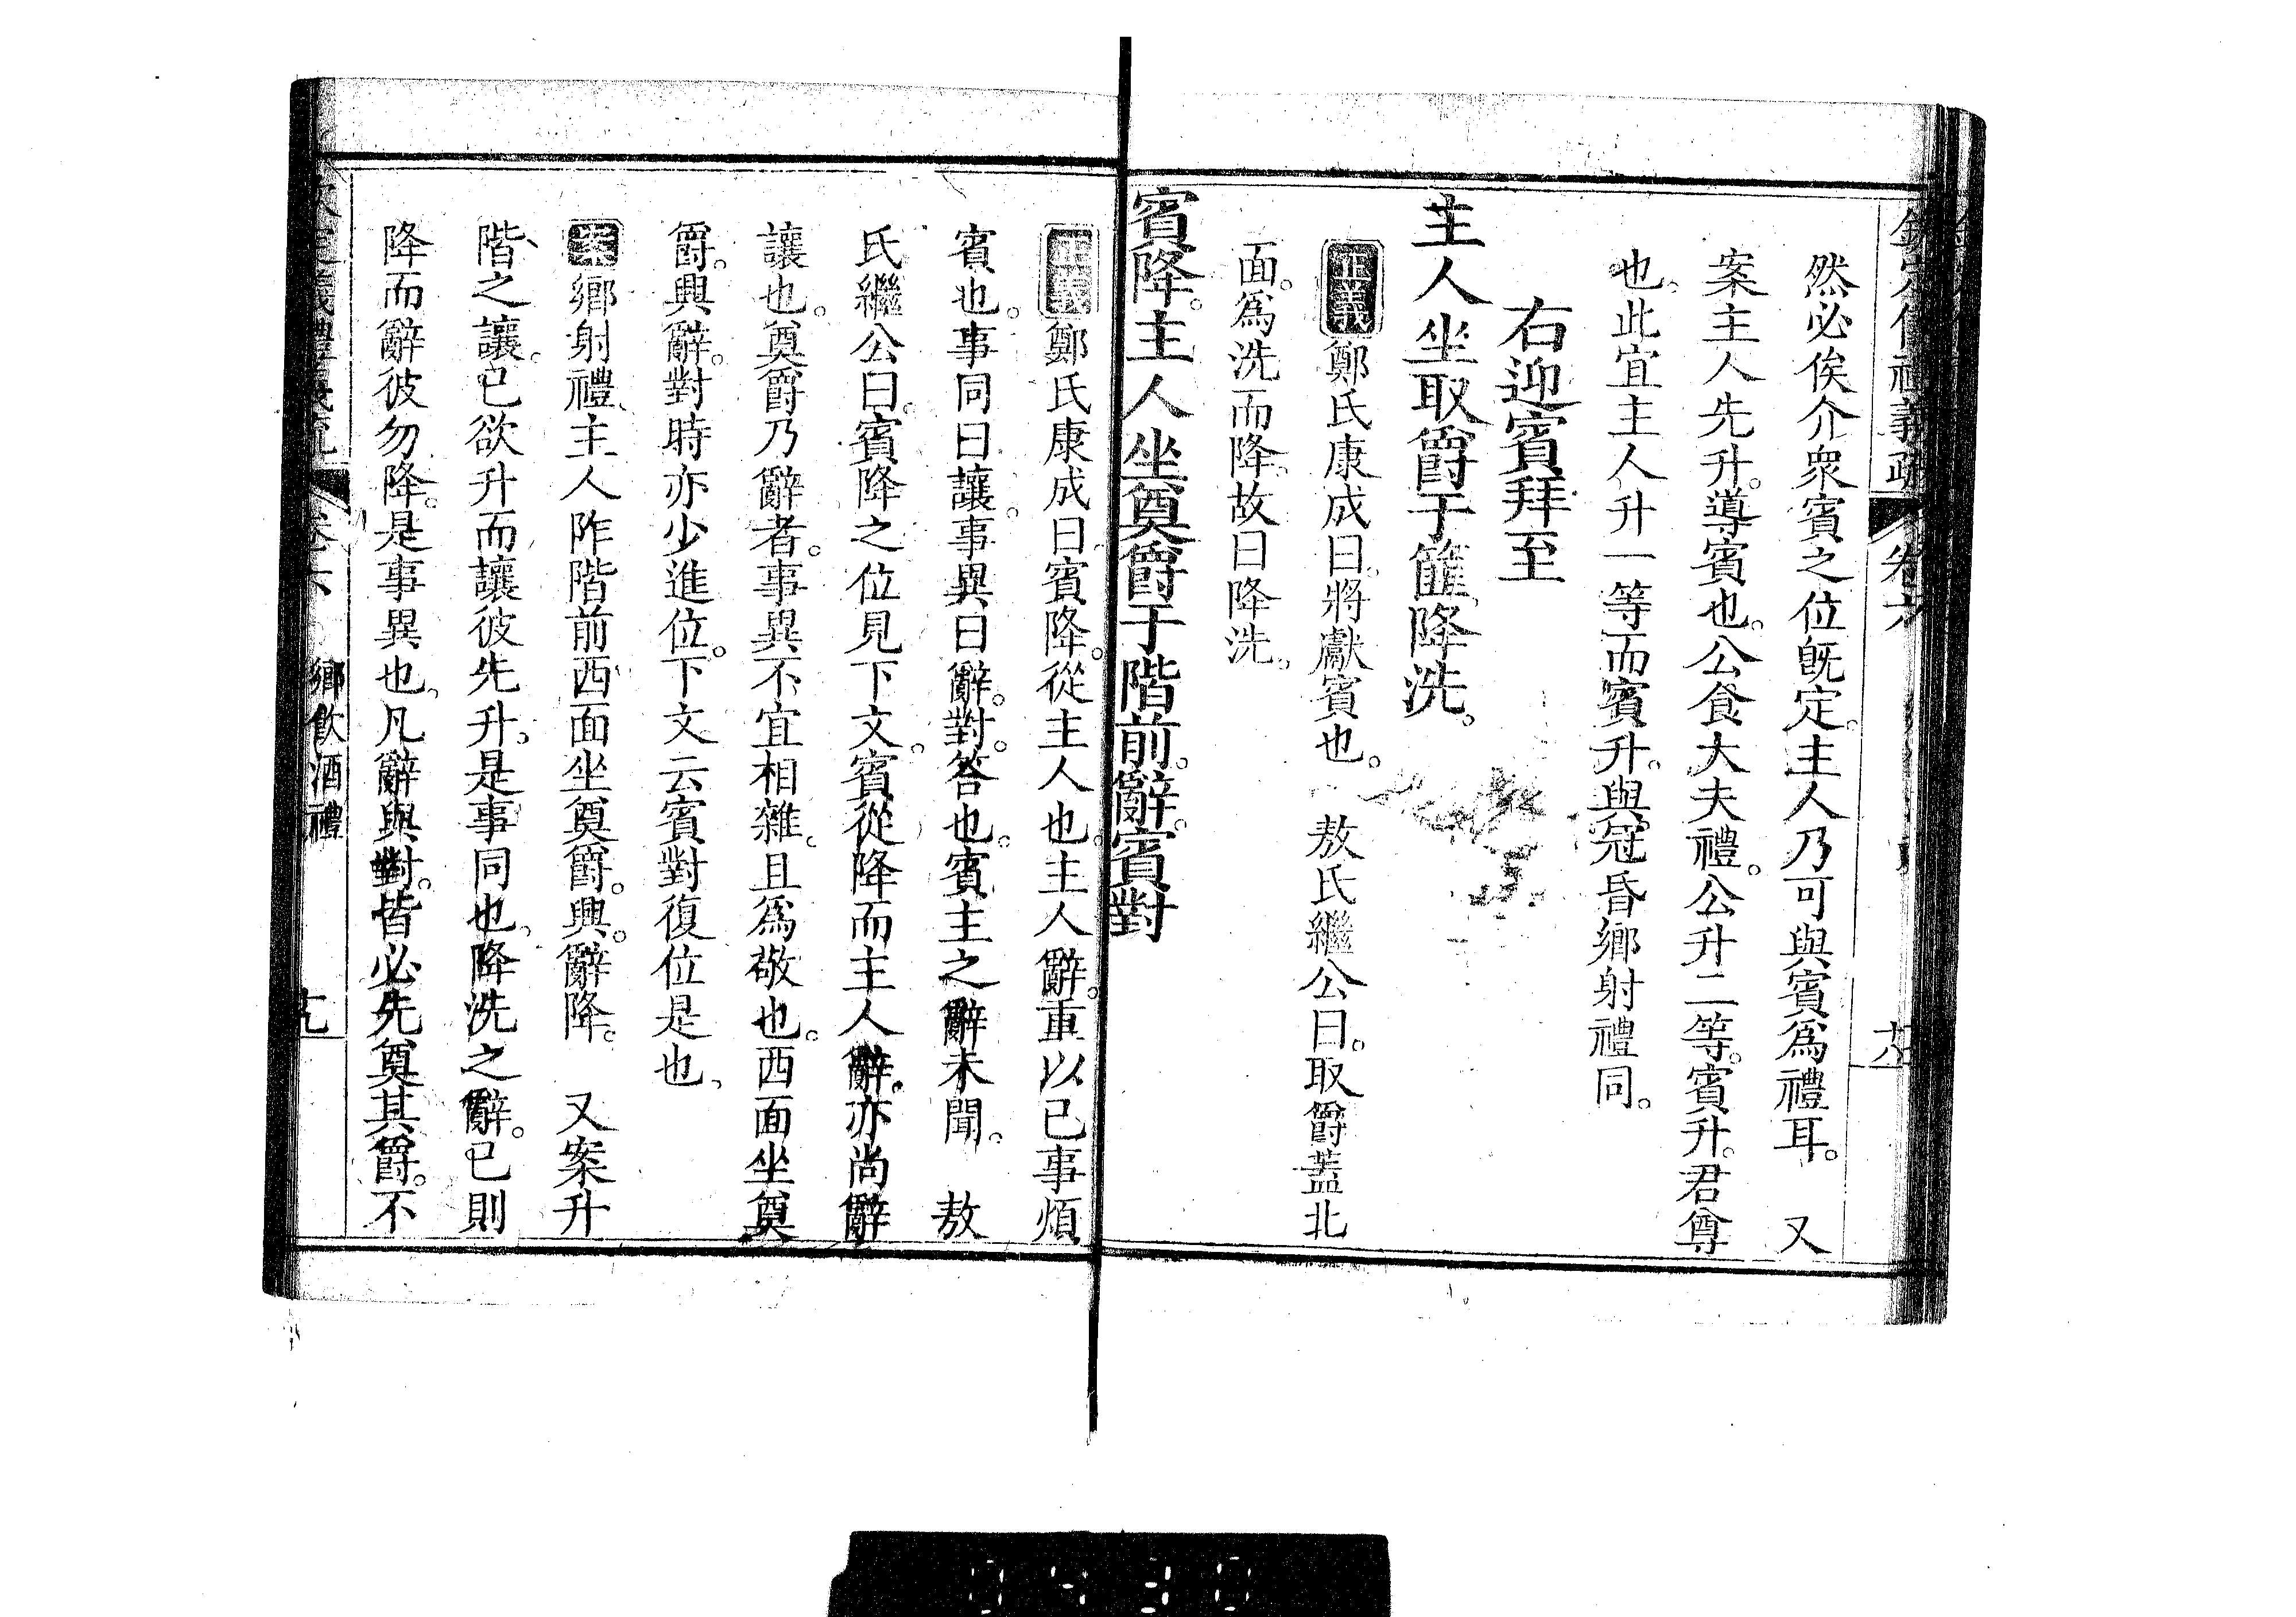 欽定儀禮義疏 卷六 十八
然必俟介衆賓之位旣定。主人乃可與賓爲禮耳。 又
案主人先升。導賓也。公食大夫禮。公升二等。賓升。君尊
也。此宜主人升一等而賓升。與冠昏鄉射禮同。
右迎賓拜至
主人坐取爵于篚。降洗。
正義鄭氏康成曰。將獻賓也。 敖氏繼公曰。取爵蓋北
面。爲洗而降。故曰降洗。
賓降。主人坐奠爵于階前。辭。賓對
正義鄭氏康成曰。賓降。從主人也。主人辭。重以已事煩
賓也。事同曰讓。事異曰辭。對。答也。賓主之辭未聞。 敖
氏繼公曰。賓降之位見下文。賓從降而主人辭。亦尚辭
讓也。奠爵乃辭者。事異不宜相雜。且爲敬也。西面坐奠
爵。興辭。對時亦少進位。下文云賓對復位是也。
案鄉射禮。主人阼階前西面坐奠爵。興。辭降。 又案升
階之讓。已欲升而讓彼先升。是事同也。降洗之辭。已則
降而辭彼勿降。是事異也。凡辭與對。皆必先奠其爵。不
欽定儀禮義疏 卷六 鄉飲酒禮 十九